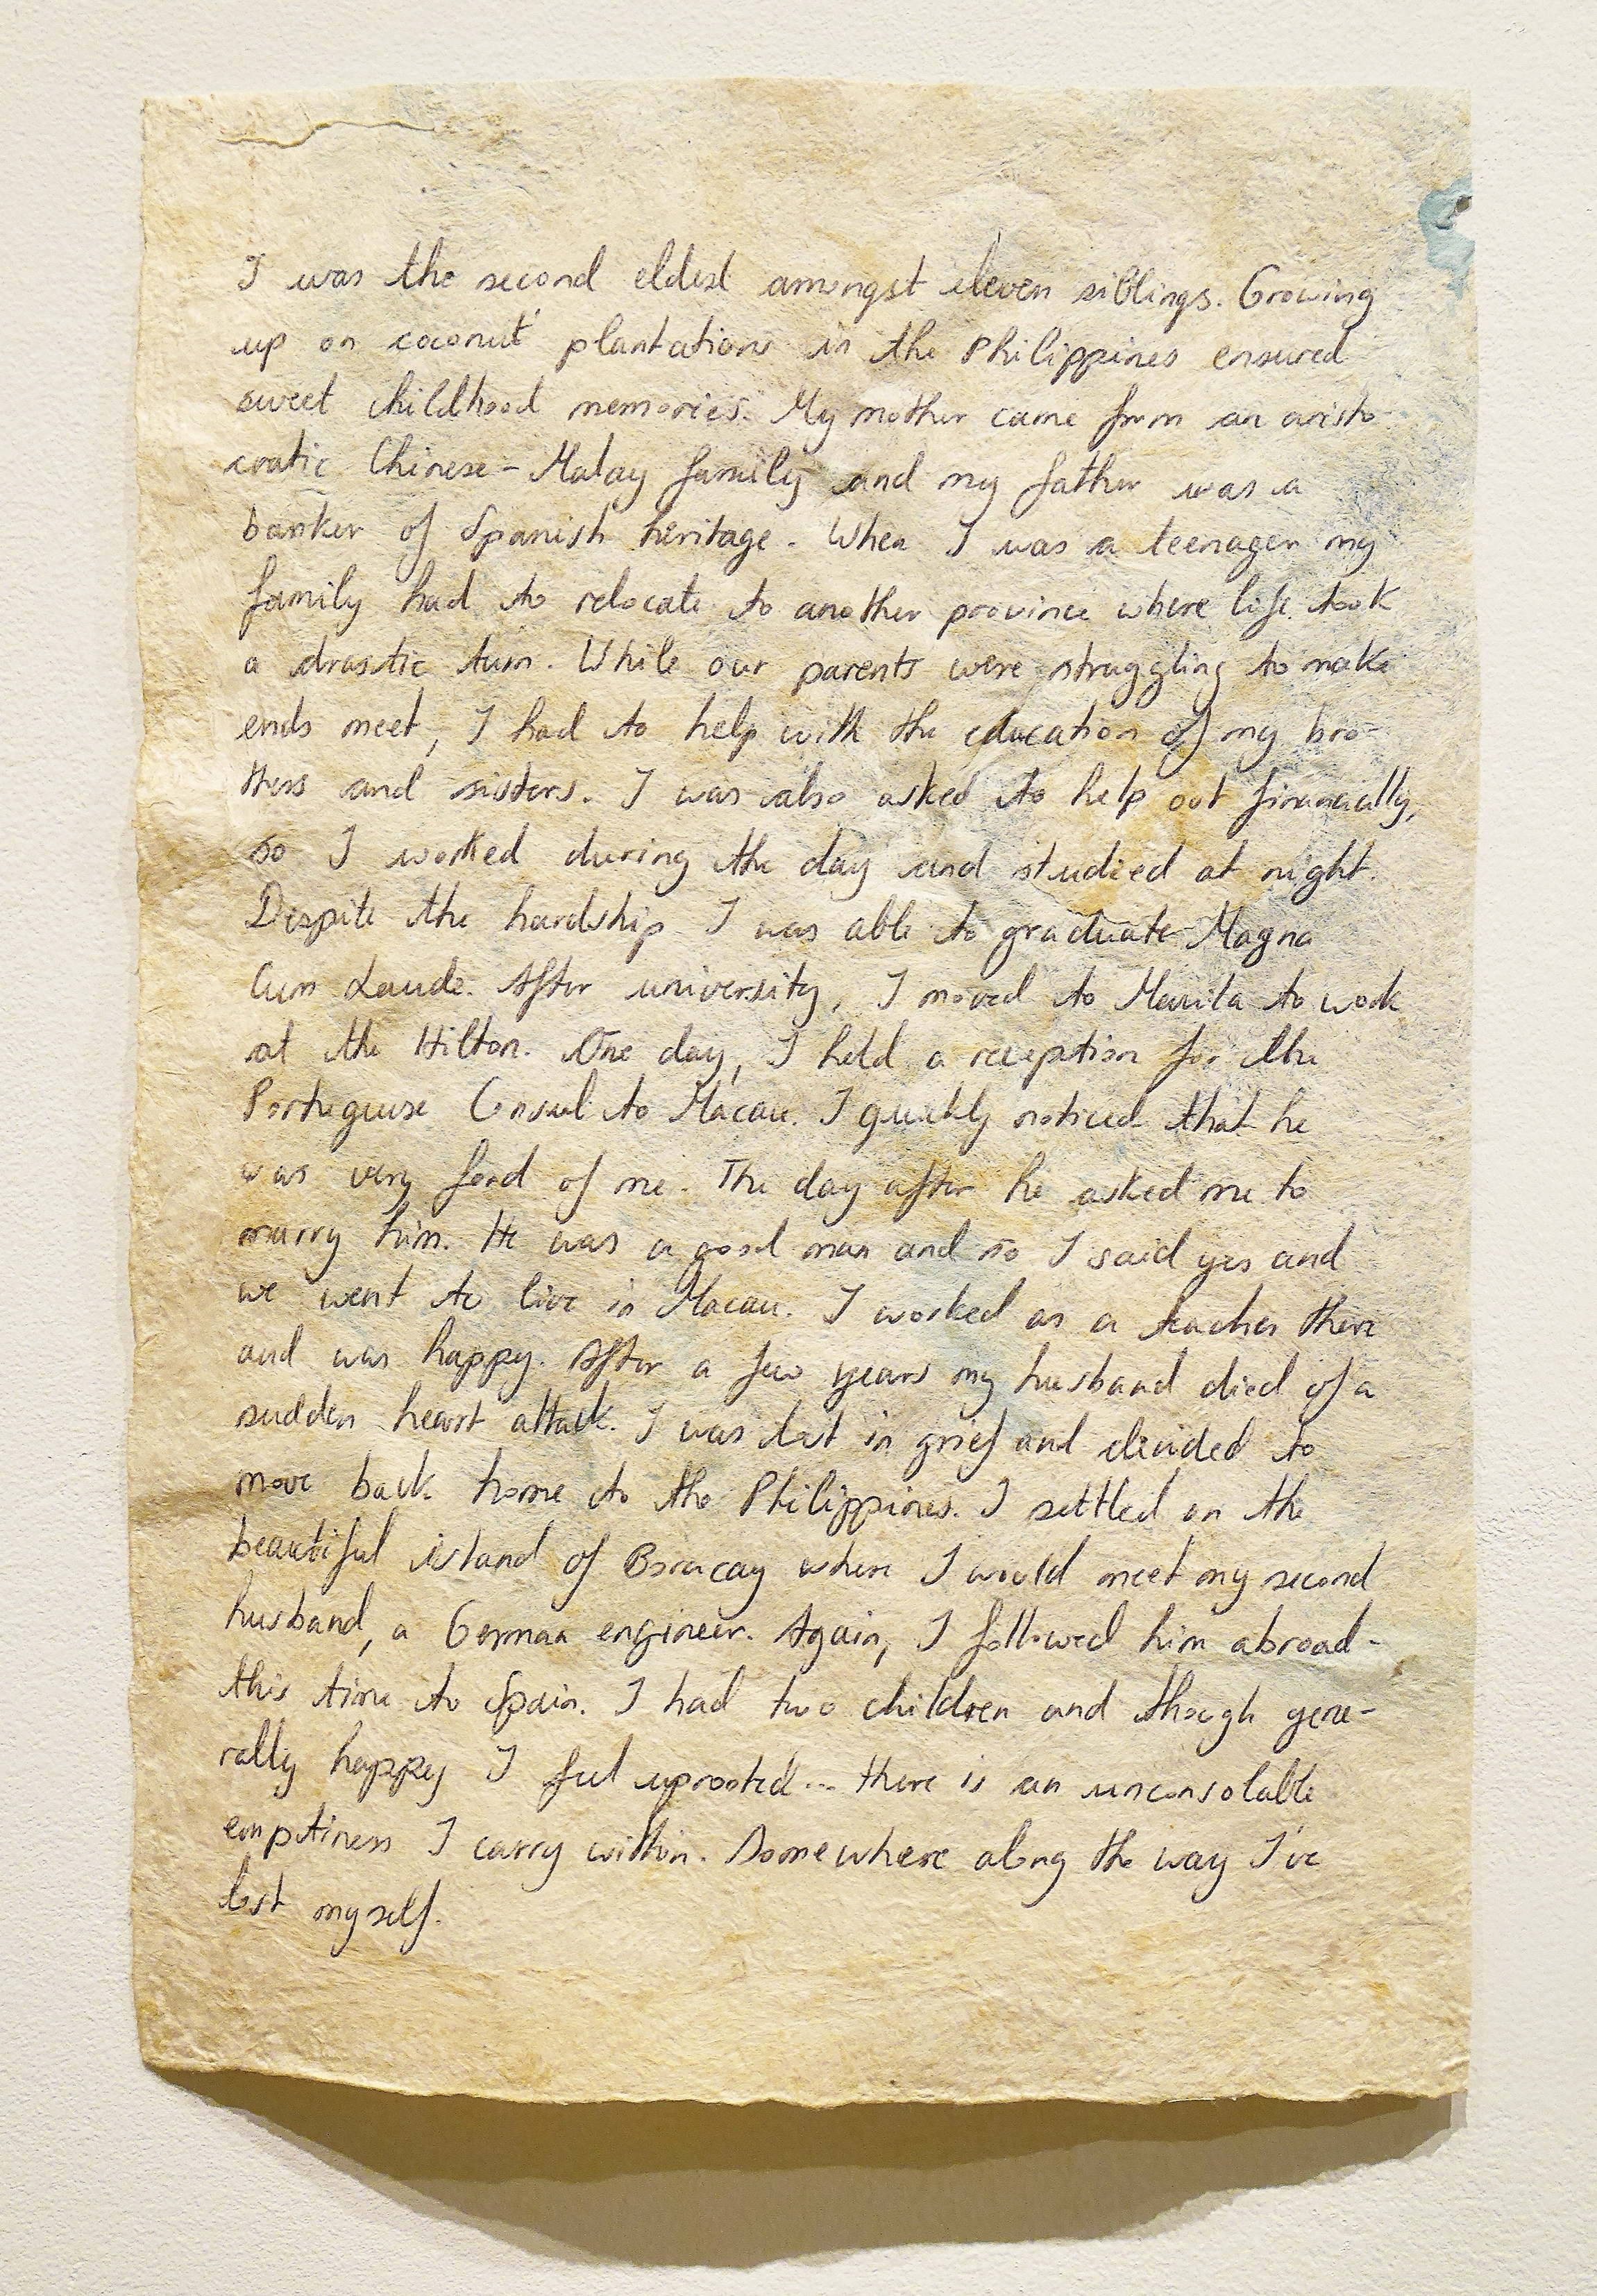 I was the second eldest amongst eleven siblings. Growing
up on coconut plantations in the Philippines ensured
sweet childhood memories. My mother came from an aristo-
cratic Chinese-Malay family and my father was a
banker of Spanish heritage. When I was a teenager my
family had to relocate to another province where life took
a drastic turn. While our parents were struggling to make
ends meet, I had to help with the education of my bro-
thers and sisters. I was also asked to help out financially,
so I worked during the day and studied at night.
Despite the hardship I was able to graduate Magna
Cum Laude. After university, I moved to Manila to work
at the Hilton. One day, I held a reception for the
Portuguese Consul to Macau. I quickly noticed that he
was very fond of me. The day after he asked me to
marry him. He was a good man and so I said yes and
we went to live in Macau. I worked as a teacher there
and was happy. After a few years my husband died of a
sudden heart attack. I was lost in grief and decided to
move back home to the Philippines. I settled on the
beautiful island of Boracay where I would meet my second
husband, a German engineer. Again, I followed him abroad-
this time to Spain. I had two children and though gene-
rally happy I feel uprooted... there is an unconsolable
emptiness I carry within. Somewhere along the way I've
lost myself.